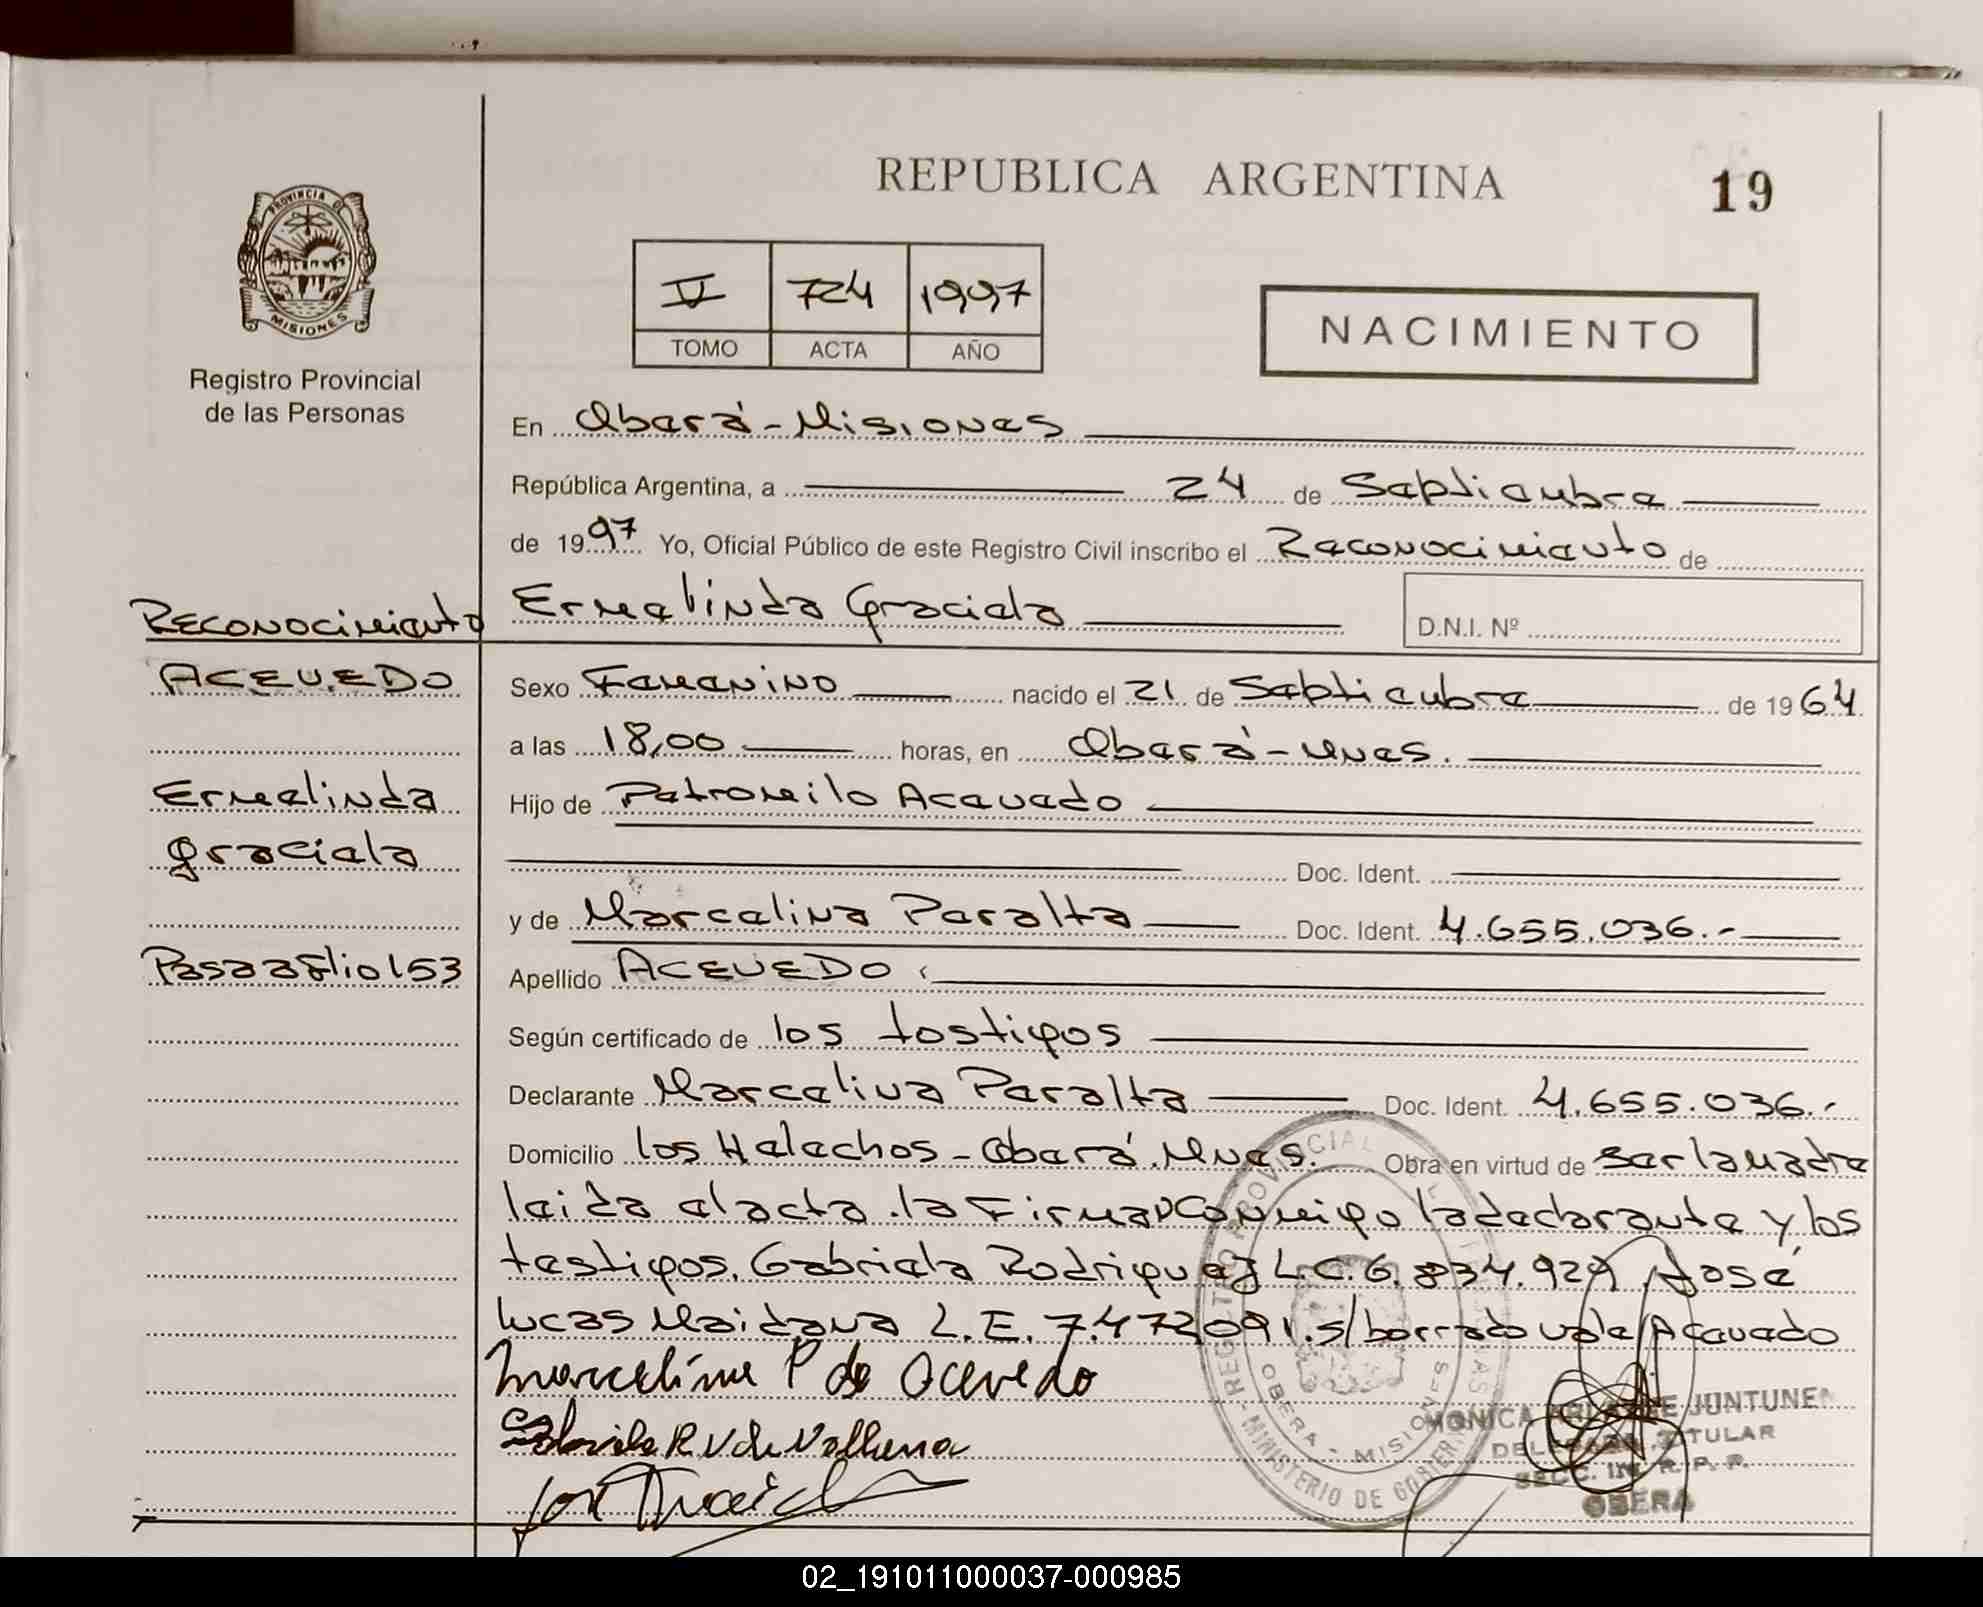 REPUBLICA ARGENTINA
19
PROVINCIA DE
MISIONES
Registro Provincial
de las Personas
V 724 1997
TOMO ACTA AÑO
NACIMIENTO
En Oberá - Misiones
República Argentina, a 24 de Septiembre
de 1997 Yo, Oficial Público de este Registro Civil inscribo el Reconocimiento de
Reconocimiento
Ermelinda Graciela
D.N.I. Nº
ACEVEDO
Ermelinda
Graciela
Pasa a folio 153
Sexo Femenino nacido el 21 de Septiembre de 1964
a las 18,00 horas, en Oberá - Mnes.
Hijo de Petromilo Acevedo
Doc. Ident.
y de Marcelina Peralta Doc. Ident. 4.655.036.-
Apellido ACEVEDO
Según certificado de los testigos
Declarante Marcelina Peralta Doc. Ident. 4.655.036.-
Domicilio los Helechos - Oberá. Mnes. Obra en virtud de ser la madre
leida el acta. la Firman conmigo la declarante y los
testigos. Gabriela Rodriguez L.C. 6.834.929 José
lucas Maidana L.E. 7.472091. s/borrado vale/Acevedo
Marcelina P de Acevedo
REGISTRO PROVINCIAL DE LAS PERSONAS
OBERA - MISIONES
MINISTERIO DE GOBIERNO
MONICA JUNTUNEN
TITULAR
R. P. P.
OBERA
02_191011000037-000985